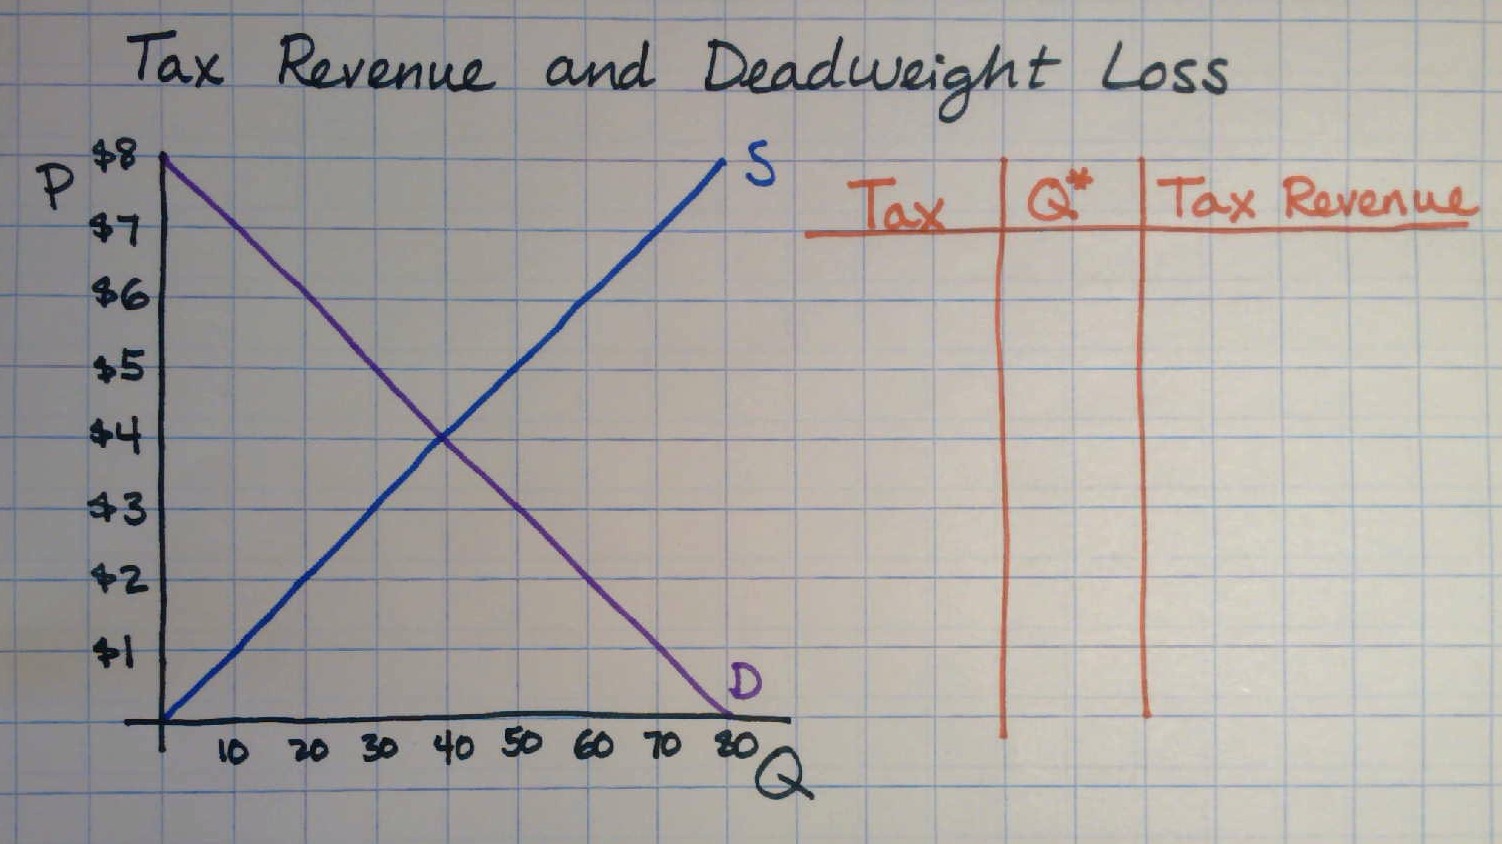 Tax Revenue and Deadweight Loss
P
$8
$7
$6
$5
$4
$3
$2
$1
S
D
10 20 30 40 50 60 70 80
Q
Tax Q* Tax Revenue